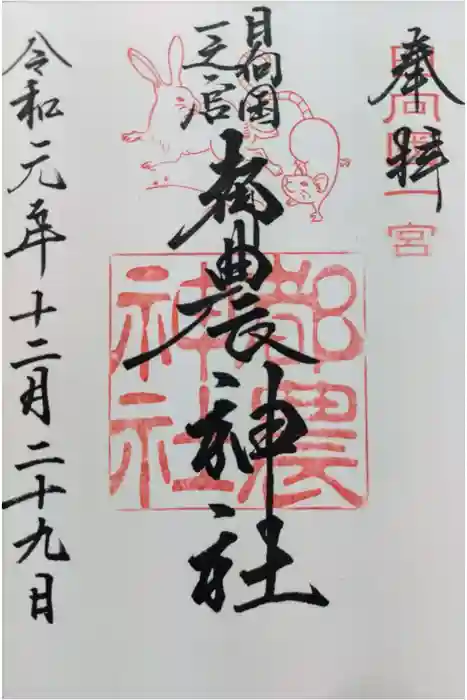 奉拝
日向国一宮
日向国
一之宮
都農神社
都農
神社
令和元年十二月二十九日